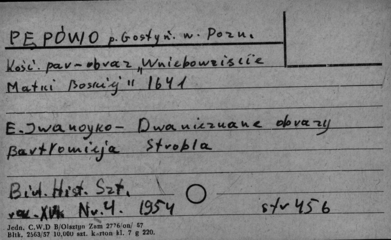 PĘPÓWO p. Gostyń. w. Pozn.
Kość. par – obraz „Wniebowzięcie
Matki Boskiej" 1641
E. Iwanoyko – Dwa nieznane obrazy
Bartłomieja Strobla
Biul. Hist. Szt.
rok. XVI. Nr. 4. 1954 str 456
Jedn. C.W.D B/Olsztyn Zam 2776/on/ 57
Bltk. 2563/57 10,000 szt. karton kl. 7 g 220.